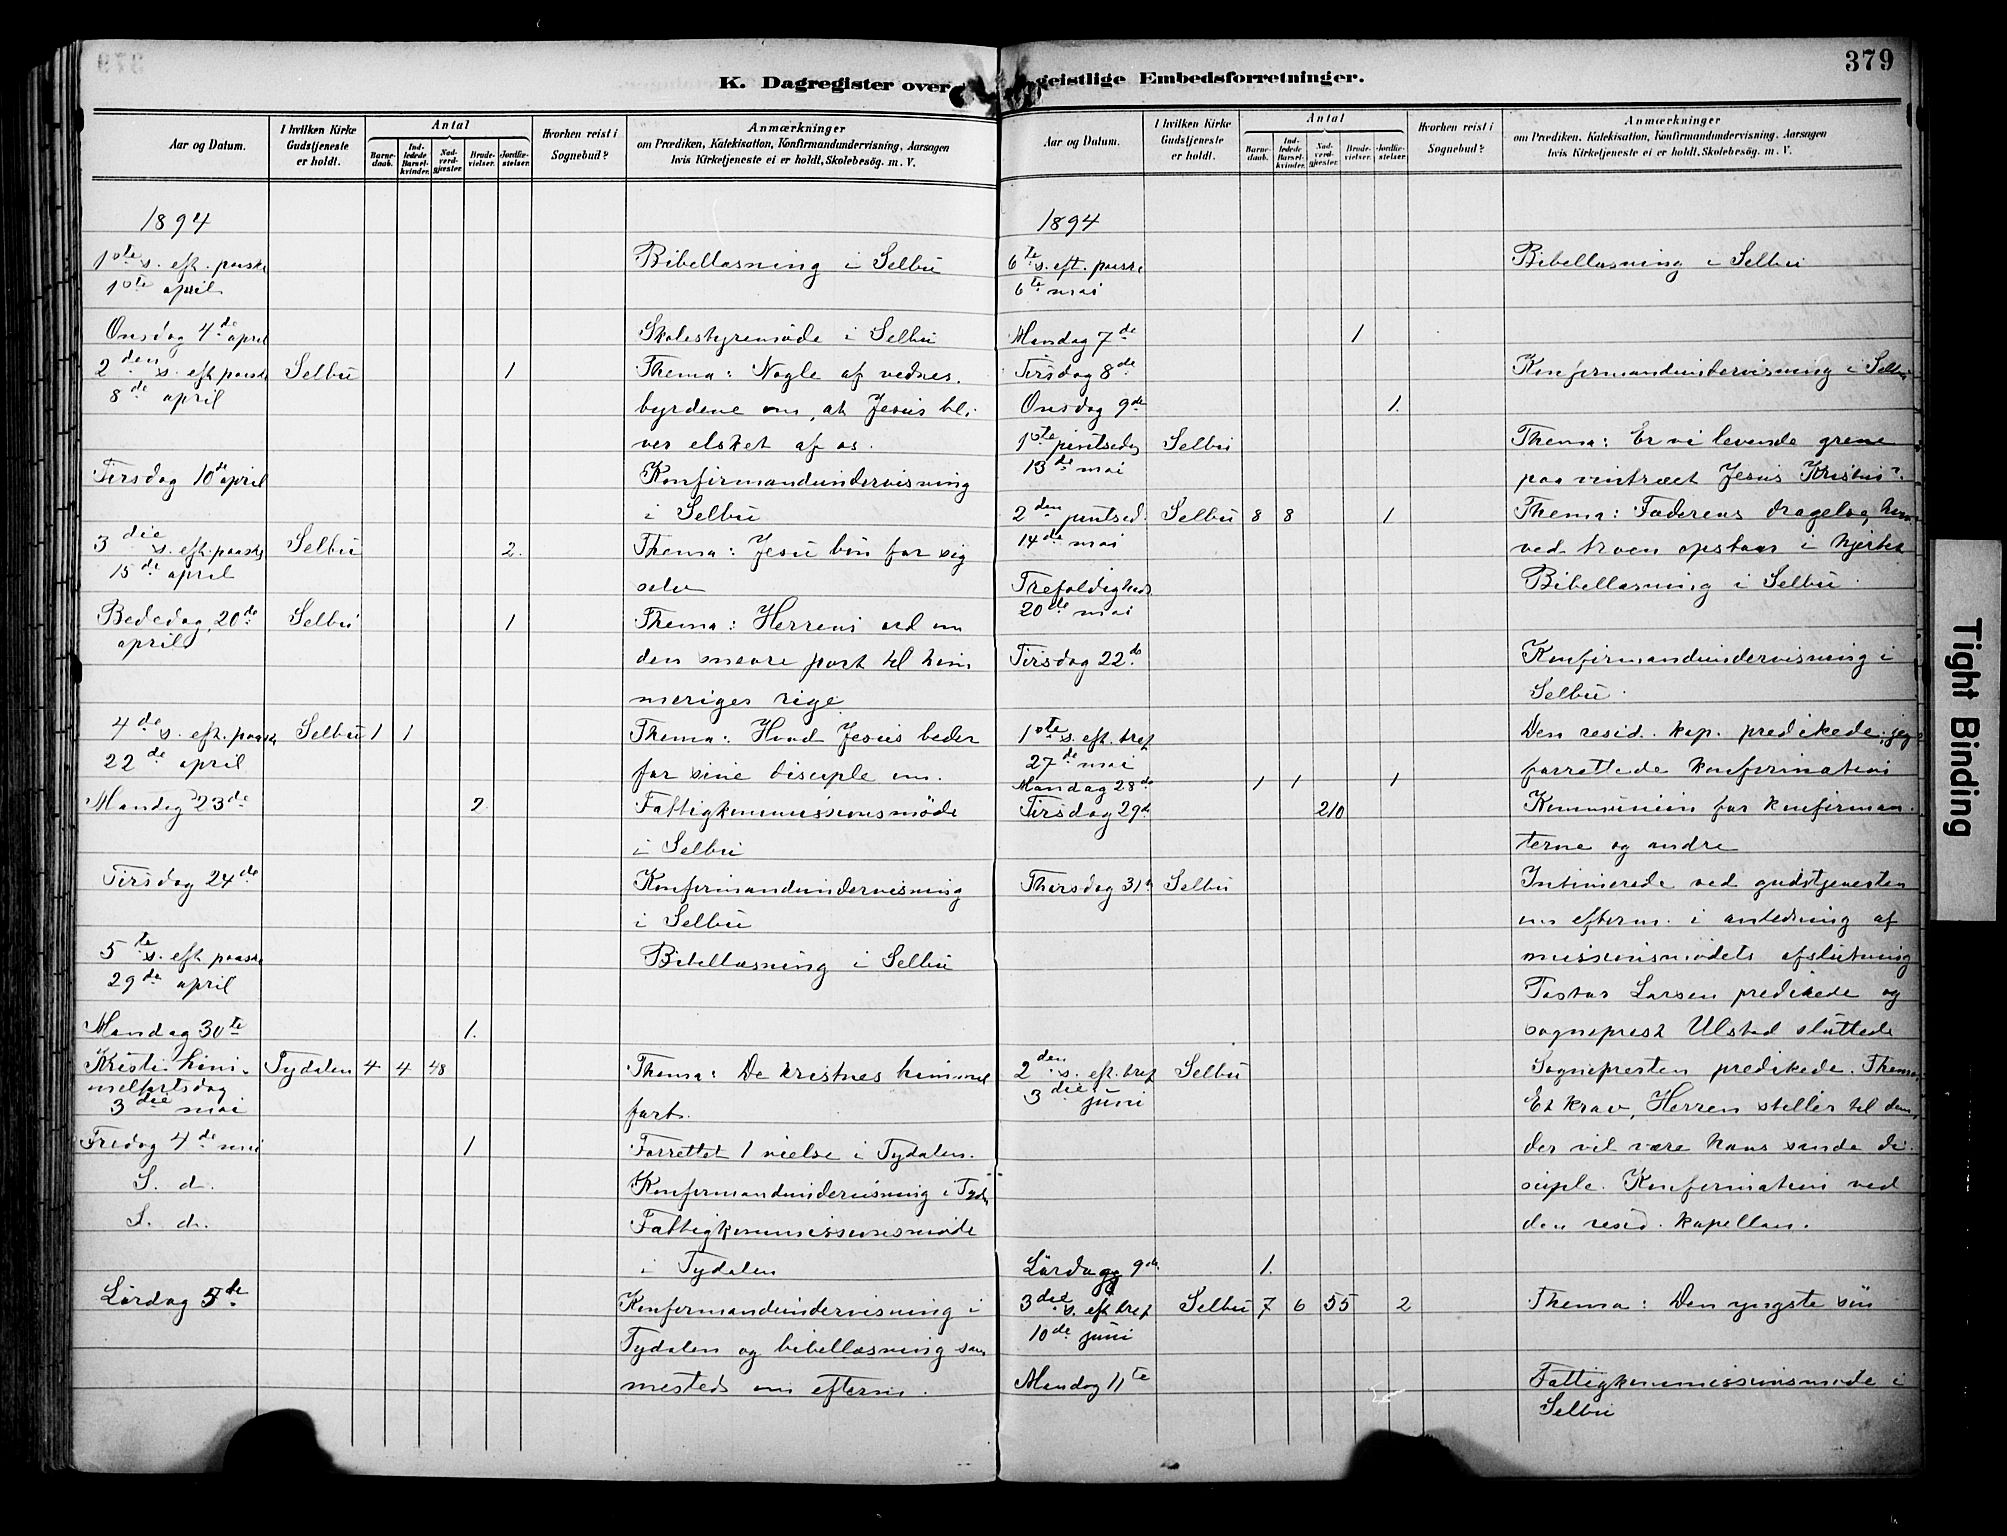 379
K. Dagregister over geistlige Embedsforretninger.
Aar og Datum.
I hvilken Kirke Gudstjeneste er holdt.
Antal
Barnedaab.
Indledede Barselkvinder.
Nadverdgjæster.
Brudevielser.
Jordfæstelser.
Hvorhen reist i Sognebud?
Anmærkninger
om Prædiken, Katekisation, Konfirmandundervisning, Aarsagen
hvis Kirketjeneste ei er holdt, Skolebesøg. m. V.
1894
1ste s. eft. paaske Bibellæsning i Selbu
1ste april
Onsdag 4de april Skolestyremøde i Selbu
2den s. eft. paaske Selbu 1 Thema: Nogle af vidnes.
8de april byrdene om, at Jesus bli.
ver elsket af os.
Tirsdag 10de april Konfirmandundervisning
i Selbu
3die s. eft. paaske Selbu 2. Thema: Jesu bøn for sig
15de april selv
Bededag, 20de Selbu 1 Thema: Herrens ord om
april den snevre port til him
meriges rige
4de s. eft. paaske Selbu 1 1 Thema: Hvad Jesus beder
22de april for sine disciple om.
Mandag 23de 2 Fattigkommissionsmøde
i Selbu
Tirsdag 24de Konfirmandundervisning
i Selbu
5te s. eft. paaske Bibellæsning i Selbu
29de april
Mandag 30te 1.
Kristi him- Tydalen 4 4 48 Thema: De kristnes himmel
melfartsdag
3die mai fart.
Fredag 4de mai 1 Forrettet 1 vielse i Tydalen.
S. d. Konfirmandundervisning i Tyda
S. d. Fattigkommissionsmøde
i Tydalen
Lördag 5de Konfirmandundervisning i
Tydalen og bibellæsning sam
mesteds om efterm.
Aar og Datum.
I hvilken Kirke Gudstjeneste er holdt.
Antal
Barnedaab.
Indledede Barselkvinder.
Nadverdgjæster.
Brudevielser.
Jordfæstelser.
Hvorhen reist i Sognebud?
Anmærkninger
om Prædiken, Katekisation, Konfirmandundervisning, Aarsagen
hvis Kirketjeneste ei er holdt, Skolebesøg. m. V.
1894
6te s. eft. paaske Bibellæsning i Selbu
6te mai
Mandag 7de 1
Tirsdag 8de Konfirmandundervisning i Selbu
Onsdag 9de 1.
1ste pintsedag Selbu Thema: Er vi levende grene
13de mai paa vintræet Jesus Kristus?
2den pintsed. Selbu 8 8 1 Thema: Faderens dragelse
14de mai ved troen opstaar i hjertet
Trefoldigheds Bibellæsning i Selbu.
20de mai
Tirsdag 22de Konfirmandundervisning i
Selbu.
1ste s. eft. tref Den resid. kap. predikede, jeg
27de mai forrettede konfirmation
Mandag 28de 1 1 1
Tirsdag 29de 210 Kommunion for konfirman-
terne og andre
Thorsdag 31te Selbu Intimerede ved gudstjenesten
om efterm. i anledning af
missionsmødets afslutning
Pastor Larsen predikede og
sogneprest Ulstad sluttede
2den s. eft. tref Selbu Sognepresten predikede. Thema:
3die juni Et krav, Herren stiller til dem,
der vil være hans sande di-
siple. Konfirmation ved
den resid. kapellan.
Lördag 9de 1.
3die s. eft. tref Selbu 7 6 55 2 Thema: Den yngste søn
10de juni
Mandag 11te Fattigkommissionsmøde i
Selbu
Tight Binding